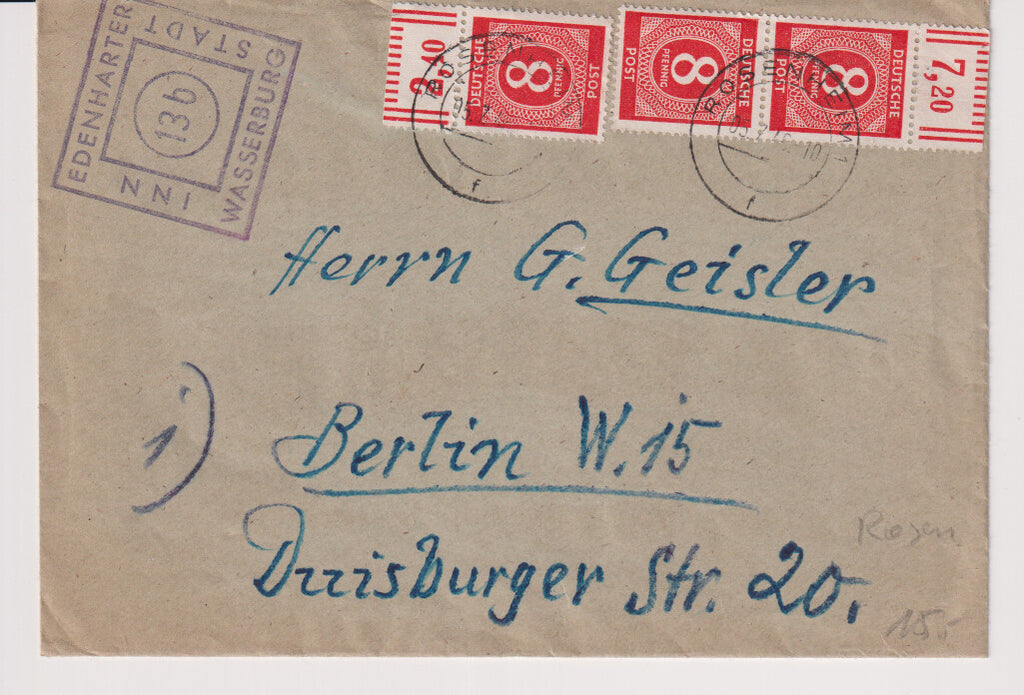 EDENHARTER
STADT
13b
INN
WASSERBURG
DEUTSCHE
8
PFENNIG
POST
DEUTSCHE
8
PFENNIG
POST
DEUTSCHE
8
PFENNIG
POST
7,20
f
f
Herrn G. Geisler
1)
Berlin W. 15
Duisburger Str. 20.
Rosen
155